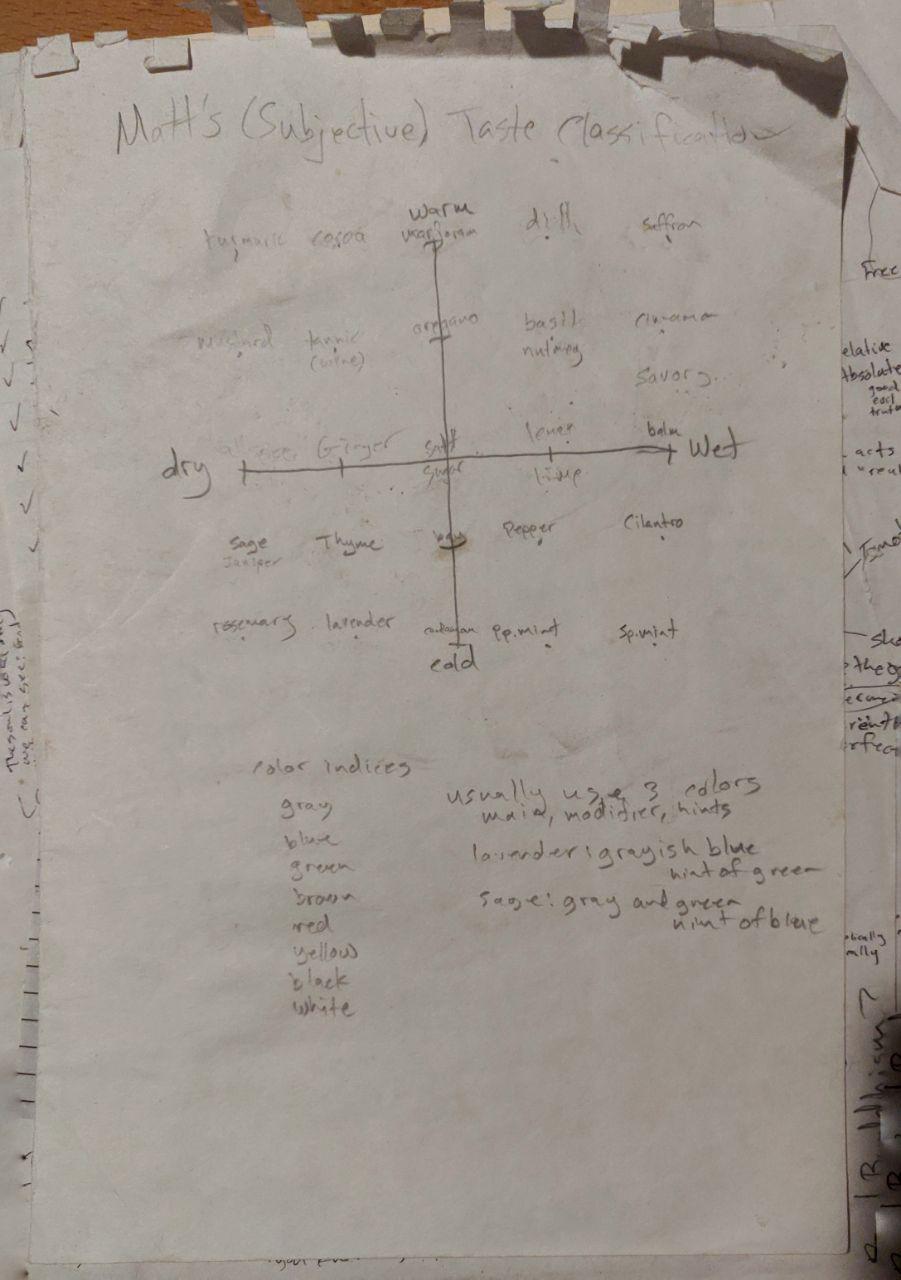 Matt's (Subjective) Taste Classification
warm
turmaric cocoa marjoram dill saffron
mustard tannic oregano basil cinamon
(wine) nutmeg
savory
allspice Ginger salt lemon balm
dry Wet
sugar lime
sage Thyme bay Pepper Cilantro
Juniper
rosemary lavender pp.mint sp.mint
cold
color indices
gray
blue
green
brown
red
yellow
black
white
usually use 3 colors
main, modifier, hints
lavender: grayish blue
hint of green
sage: gray and green
hint of blue
Free
elative
Absolute
good
evil
truth
acts